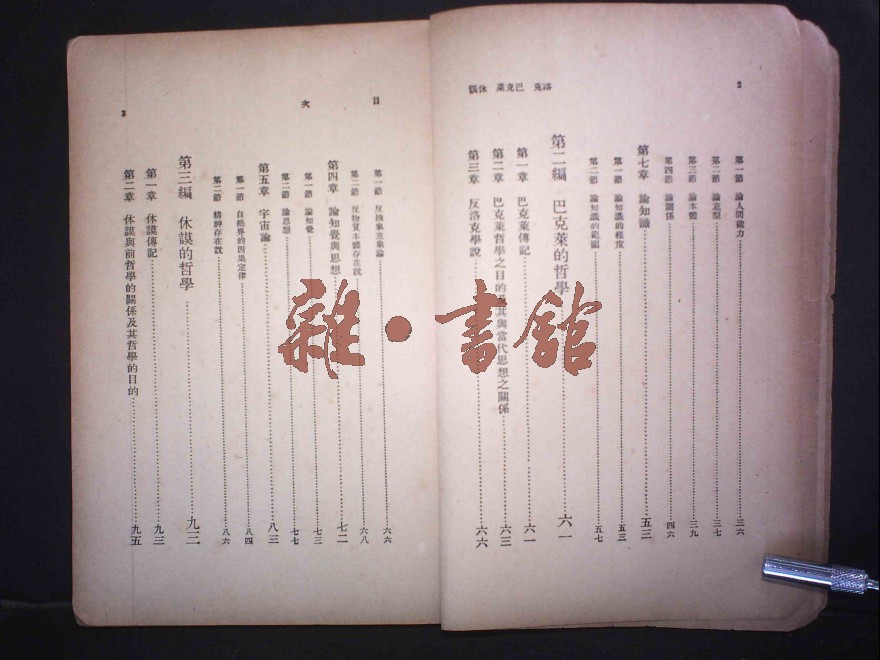 洛克 巴克萊 休謨
2
第一節 論人間能力……三六
第二節 論定型……三七
第三節 論本體……三九
第四節 論關係……四六
第七章 論知識……五三
第一節 論知識的程度……五三
第二節 論知識的範圍……五七
第二編 巴克萊的哲學……六一
第一章 巴克萊傳記……六一
第二章 巴克萊哲學之目的及其與當代思想之關係……六三
第三章 反洛克學說……六六
目 次
3
第一節 反抽象意象論……六六
第二節 反物質本體存在說……六八
第四章 論知覺與思想……七二
第一節 論知覺……七三
第二節 論思想……七七
第五章 宇宙論……八三
第一節 自然界的因果定律……八四
第二節 精神存在說……八六
第三編 休謨的哲學……九三
第一章 休謨傳記……九三
第二章 休謨與前哲學的關係及其哲學的目的……九五
雜·書館